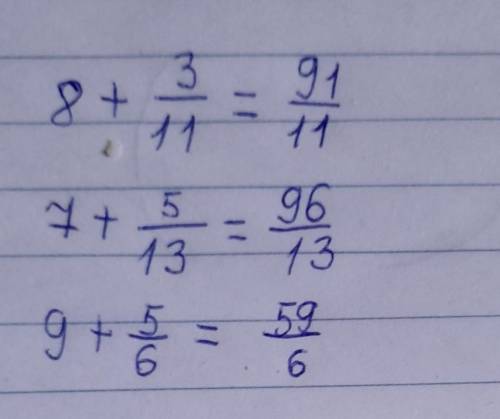 8 + 3/11 = 91/11
7 + 5/13 = 96/13
9 + 5/6 = 59/6